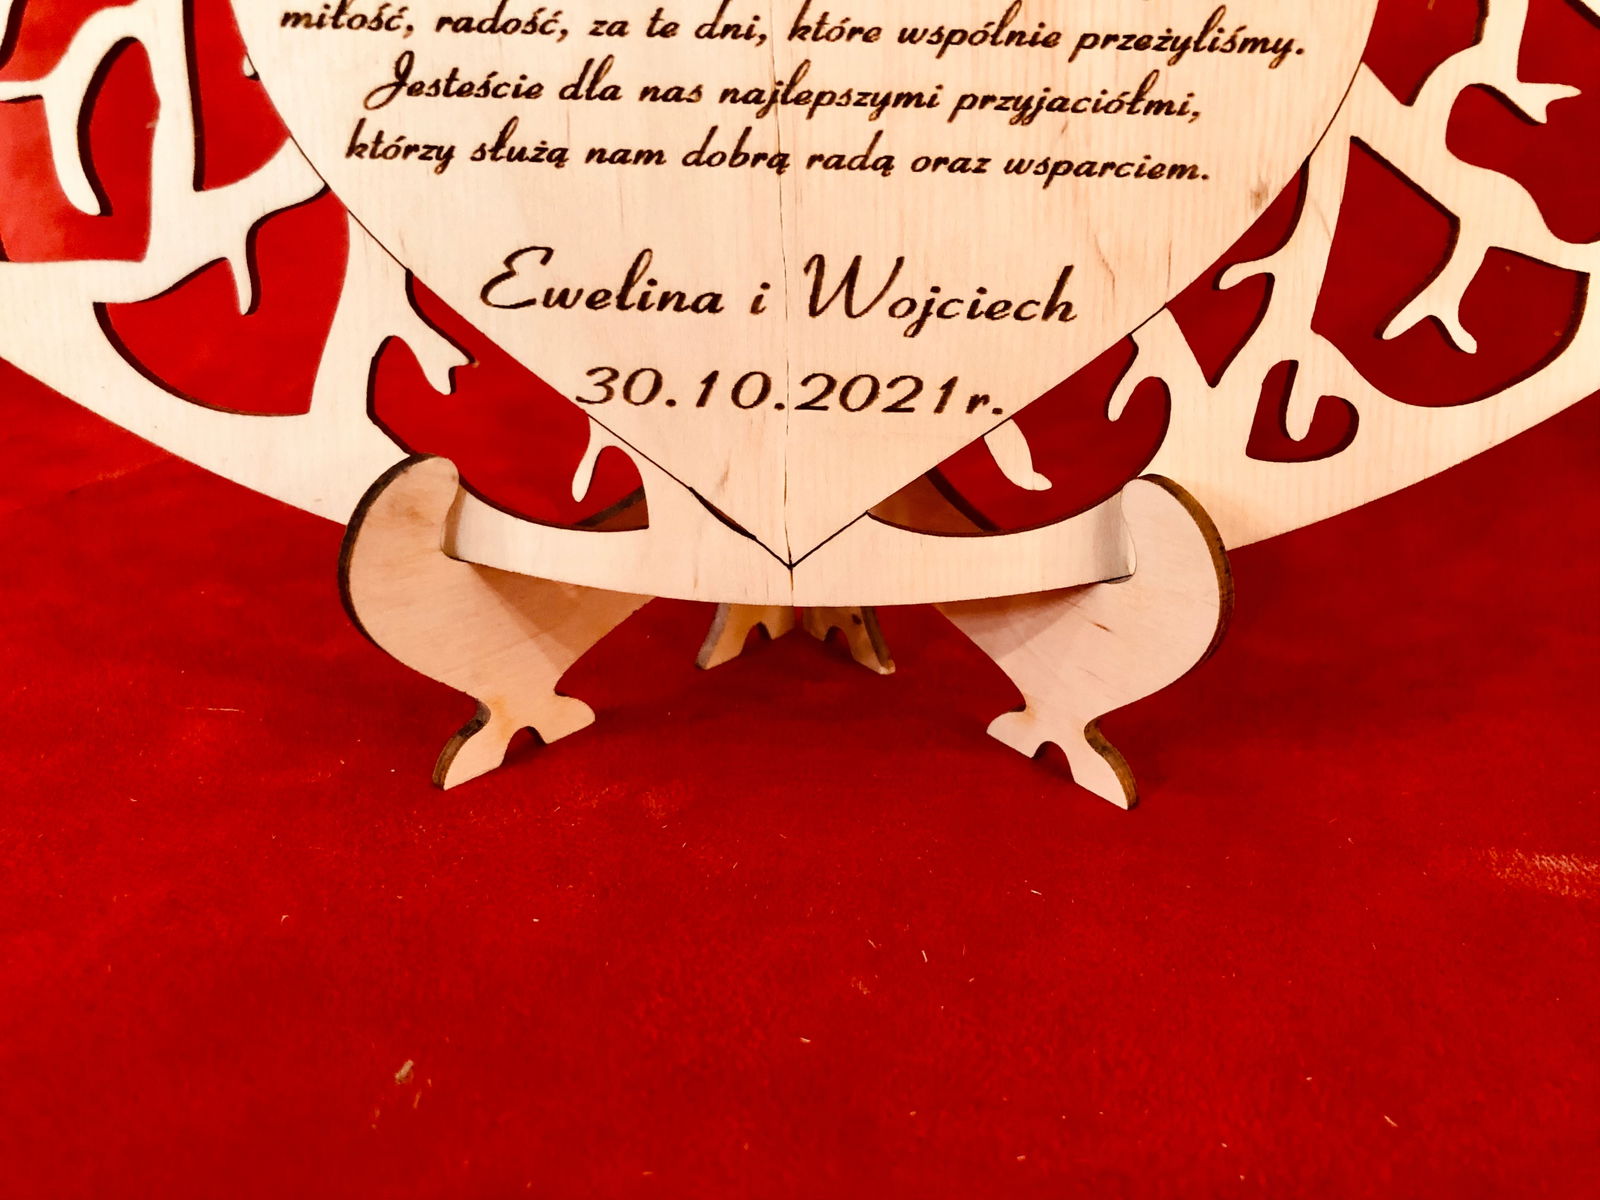 miłość, radość, za te dni, które wspólnie przeżyliśmy.
Jesteście dla nas najlepszymi przyjaciółmi,
którzy służą nam dobrą radą oraz wsparciem.
Ewelina i Wojciech
30.10.2021r.